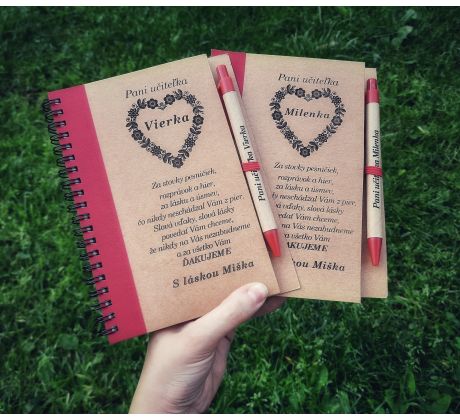 Pani učiteľka
Vierka
Za stovky pesničiek,
rozprávok a hier,
za lásku a úsmev,
čo nikdy neschádzal Vám z pier.
Slová vďaky, slová lásky
povedať Vám chceme,
že nikdy na Vás nezabudneme
a za všetko Vám
ĎAKUJEME
S láskou Miška
Pani učiteľka Vierka
Pani učiteľka
Milenka
Za stovky pesničiek,
rozprávok a hier,
za lásku a úsmev,
neschádzal Vám z pier.
vďaky, slová lásky
povedať Vám chceme,
na Vás nezabudneme
za všetko Vám
ĎAKUJEME
láskou Miška
Pani Milenka